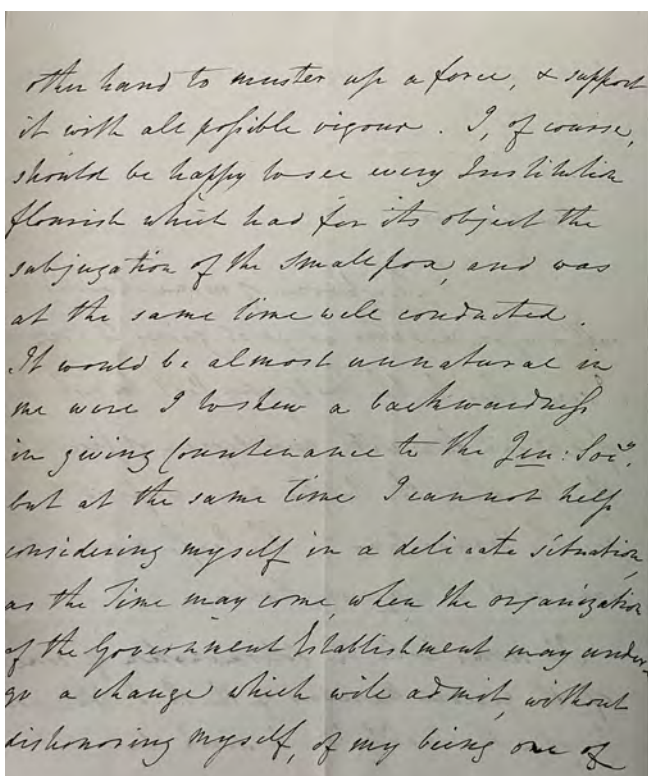 other hand to muster up a force, & support
it with all possible vigour. I, of course,
should be happy to see every Institution
flourish which had for its object the
subjugation of the Small pox, and was
at the same time well conducted.
It would be almost unnatural in
me were I to shew a backwardness
in giving Countenance to the Jen: Soćy,
but at the same time I cannot help
considering myself in a delicate situation,
as the Time may come, when the organization
of the Government Establishment may under-
go a change which will admit, without
dishonoring myself, of my being one of